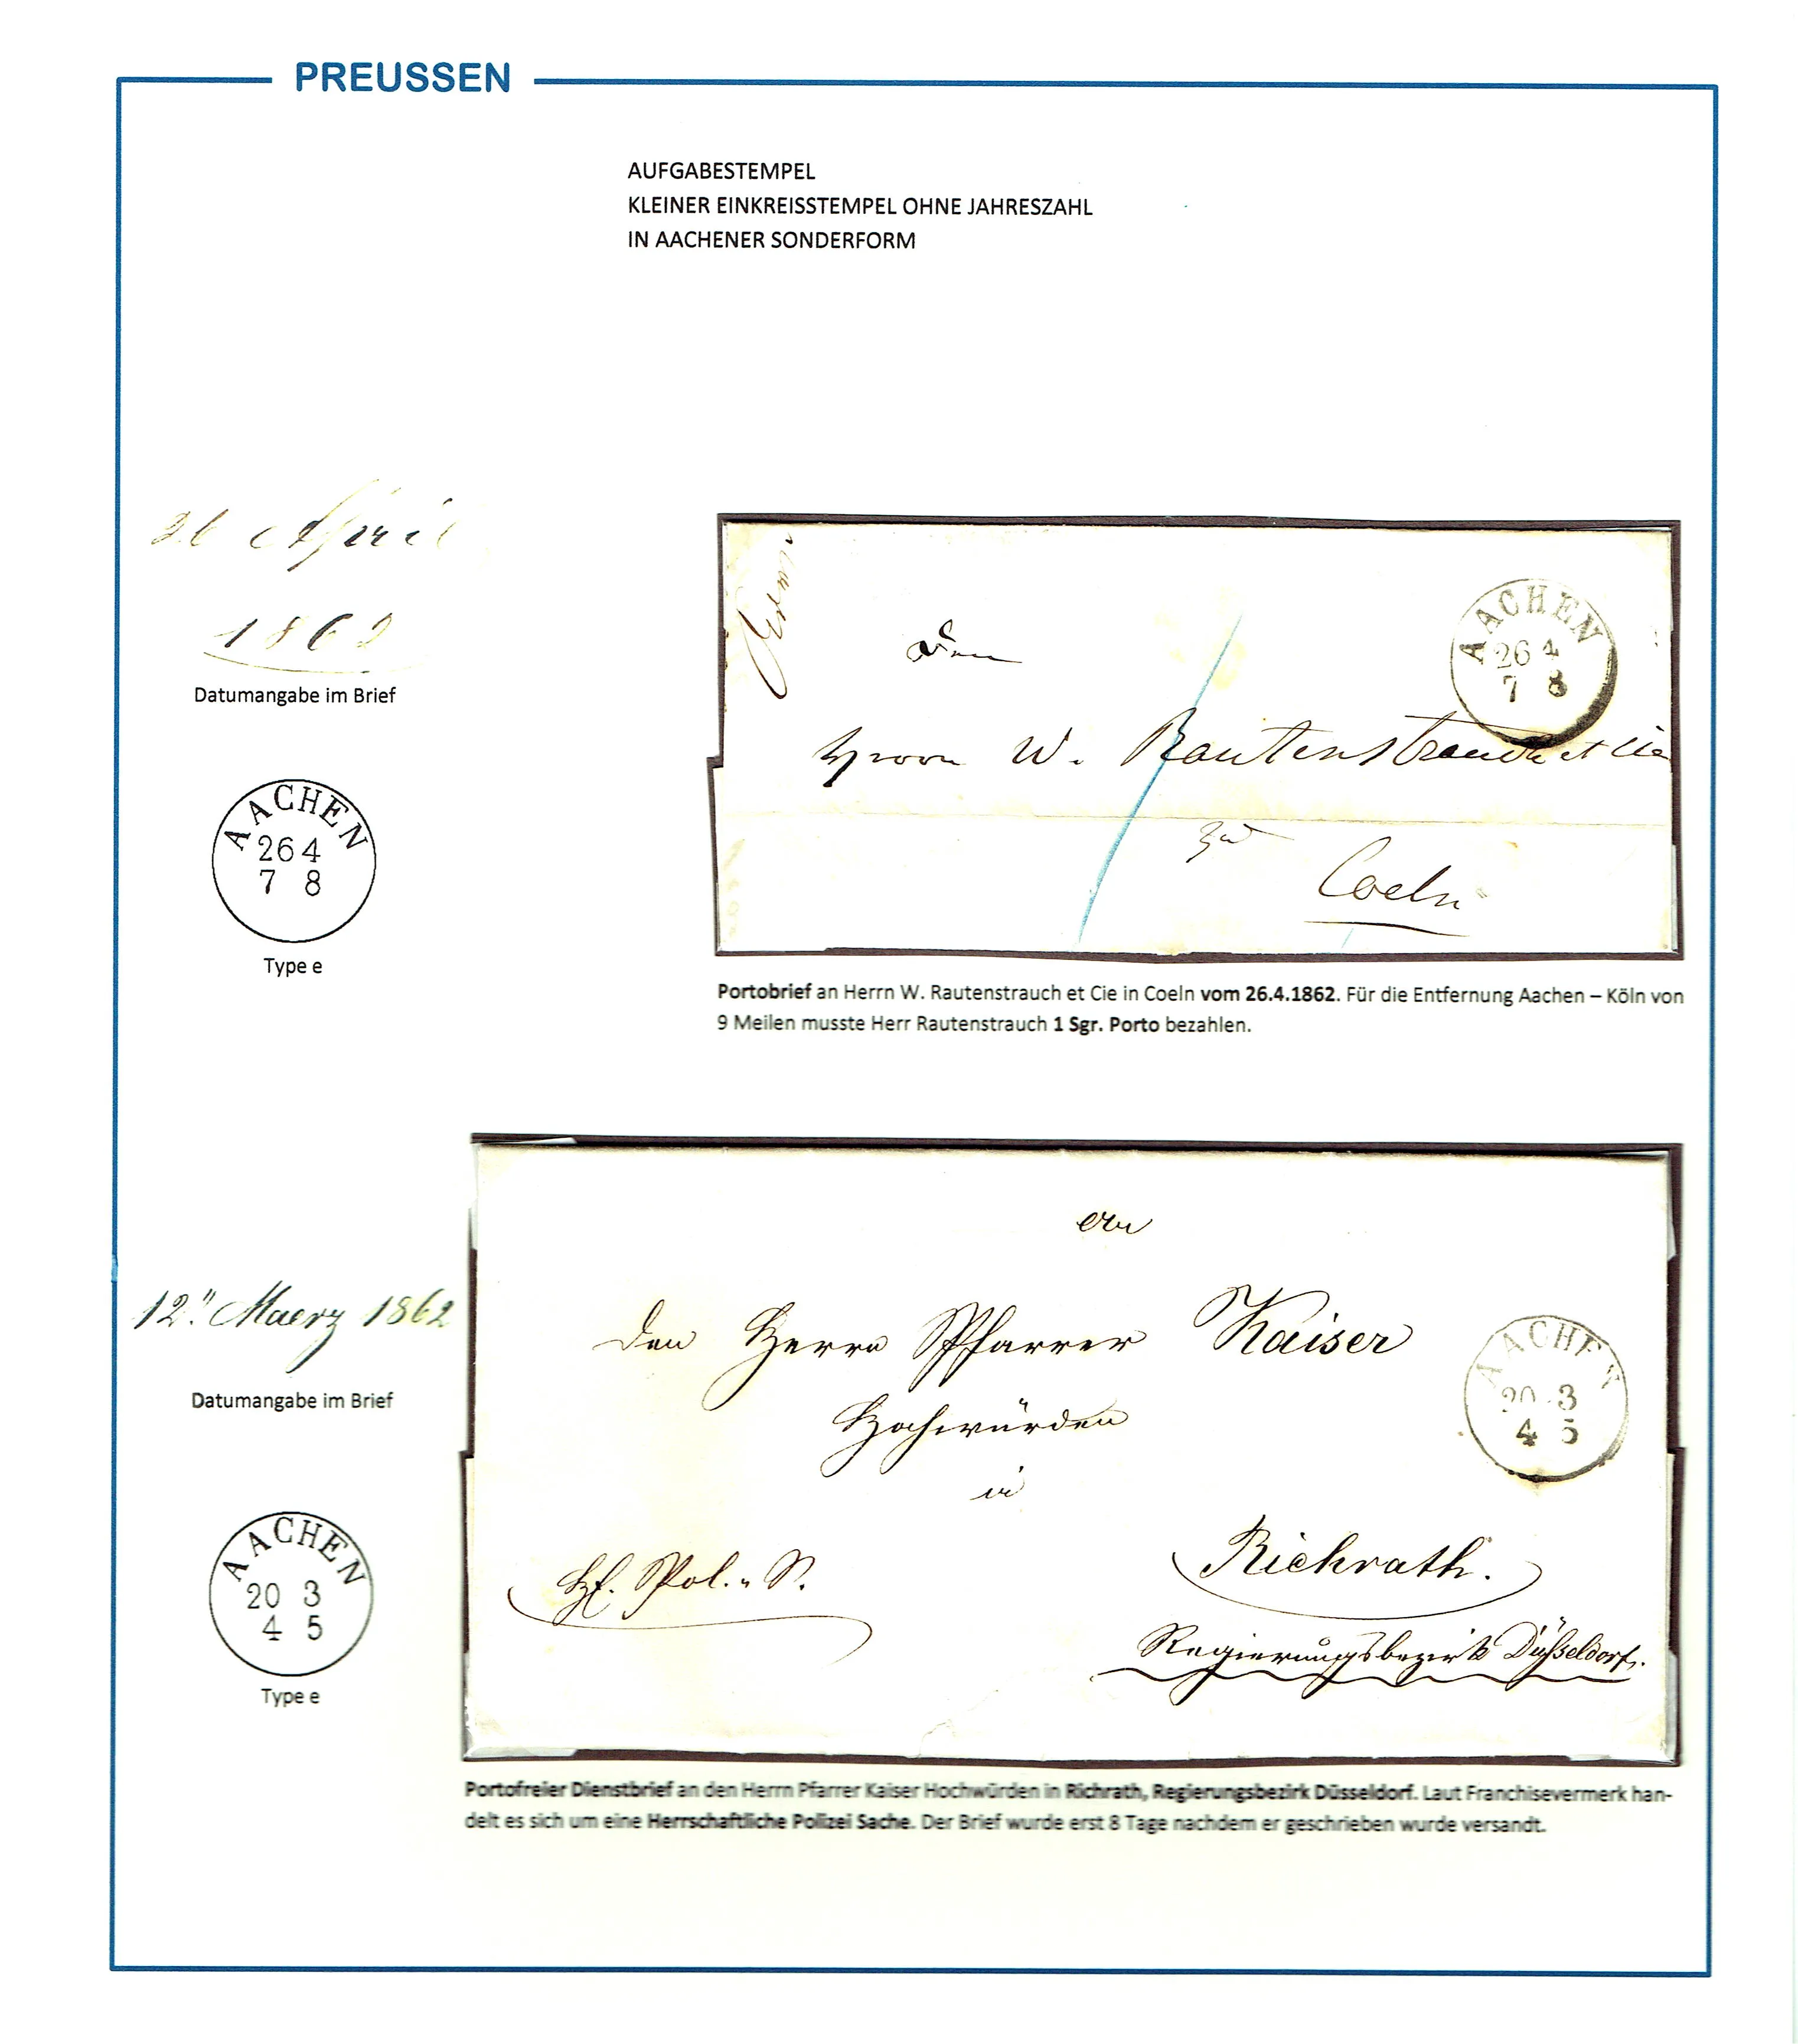 PREUSSEN
AUFGABESTEMPEL
KLEINER EINKREISSTEMPEL OHNE JAHRESZAHL
IN AACHENER SONDERFORM
26 April
1862
Datumangabe im Brief
AACHEN
26 4
7 8
Type e
AACHEN
26 4
7 8
Herrn W. Rautenstrauch et Cie
zu
Coeln
Portobrief an Herrn W. Rautenstrauch et Cie in Coeln vom 26.4.1862. Für die Entfernung Aachen – Köln von
9 Meilen musste Herr Rautenstrauch 1 Sgr. Porto bezahlen.
12. Maerz 1862
Datumangabe im Brief
AACHEN
20 3
4 5
Type e
An
den Herrn Pfarrer Kaiser
Hochwürden
in
Richrath.
Regierungsbezirk Düsseldorf.
Hf. Pol. S.
AACHEN
20 3
4 5
Portofreier Dienstbrief an den Herrn Pfarrer Kaiser Hochwürden in Richrath, Regierungsbezirk Düsseldorf. Laut Franchisevermerk han-
delt es sich um eine Herrschaftliche Polizei Sache. Der Brief wurde erst 8 Tage nachdem er geschrieben wurde versandt.